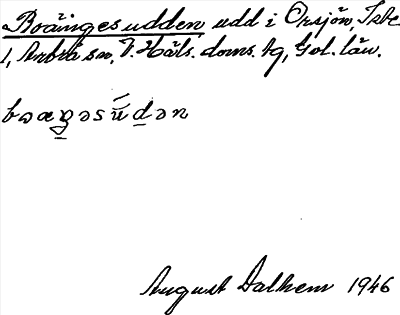 Boängesudden udd i Örsjön, Iste
1, Arbrå sn, V. Häls. doms. tg, Gvl. län.
August Dalhem 1946